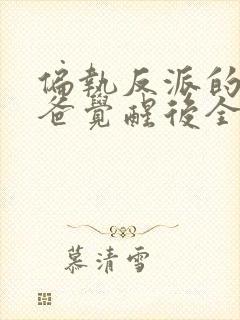 偏執反派的
爸覺醒後全
慕清雪